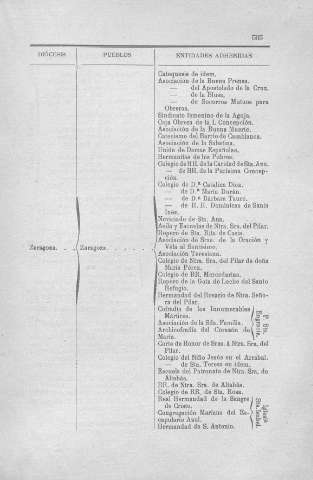 585
DIÓCESIS
PUEBLOS
ENTIDADES ADHERIDAS
Zaragoza. . .
Zaragoza. . . . . .
Catequesis de idem.
Asociación de la Buena Prensa.
— del Apostolado de la Cruz.
— de la Blusa.
— de Socorros Mutuos para
Obreras.
Sindicato femenino de la Aguja.
Caja Obrera de la I. Concepción.
Asociación de la Buena Muerte.
Catecismo del Barrio de Casablanca.
Asociación de la Sabatina.
Unión de Damas Españolas.
Hermanitas de los Pobres.
Colegio de HH. de la Caridad de Sta. Ana.
— de RR. de la Purísima Concep-
ción.
Colegio de D.ª Catalina Dina.
— de D.ª María Durán.
— de D.ª Bárbara Tauré.
— de R. R. Dominicas de Santa
Inés.
Noviciado de Sta. Ana.
Asilo y Escuelas de Ntra. Sra. del Pilar.
Ropero de Sta. Rita de Casia.
Asociación de Sras. de la Oración y
Vela al Santísimo.
Asociación Teresiana.
Colegio de Ntra. Sra. del Pilar de doña
María Pérez.
Colegio de RR. Mercedarias.
Ropero de la Gota de Leche del Santo
Refugio.
Hermandad del Rosario de Ntra. Seño-
ra del Pilar.
Cofradía de los Innumerables
Mártires.
Asociación de la Sda. Familia.
Archicofradía del Corazón de
María.
P. Sta.
Engracia.
Corte de Honor de Sras. á Ntra. Sra. del
Pilar.
Colegio del Niño Jesús en el Arrabal.
— de Sta. Teresa en idem.
Escuela del Patronato de Ntra. Sra. de
Altabás.
RR. de Ntra. Sra. de Altabás.
Colegio de RR. de Sta. Rosa.
Real Hermandad de la Sangre
de Cristo.
Congregación Mariana del Es-
capulario Azul.
Hermandad de S. Antonio.
Iglesia
Sta. Isabel.